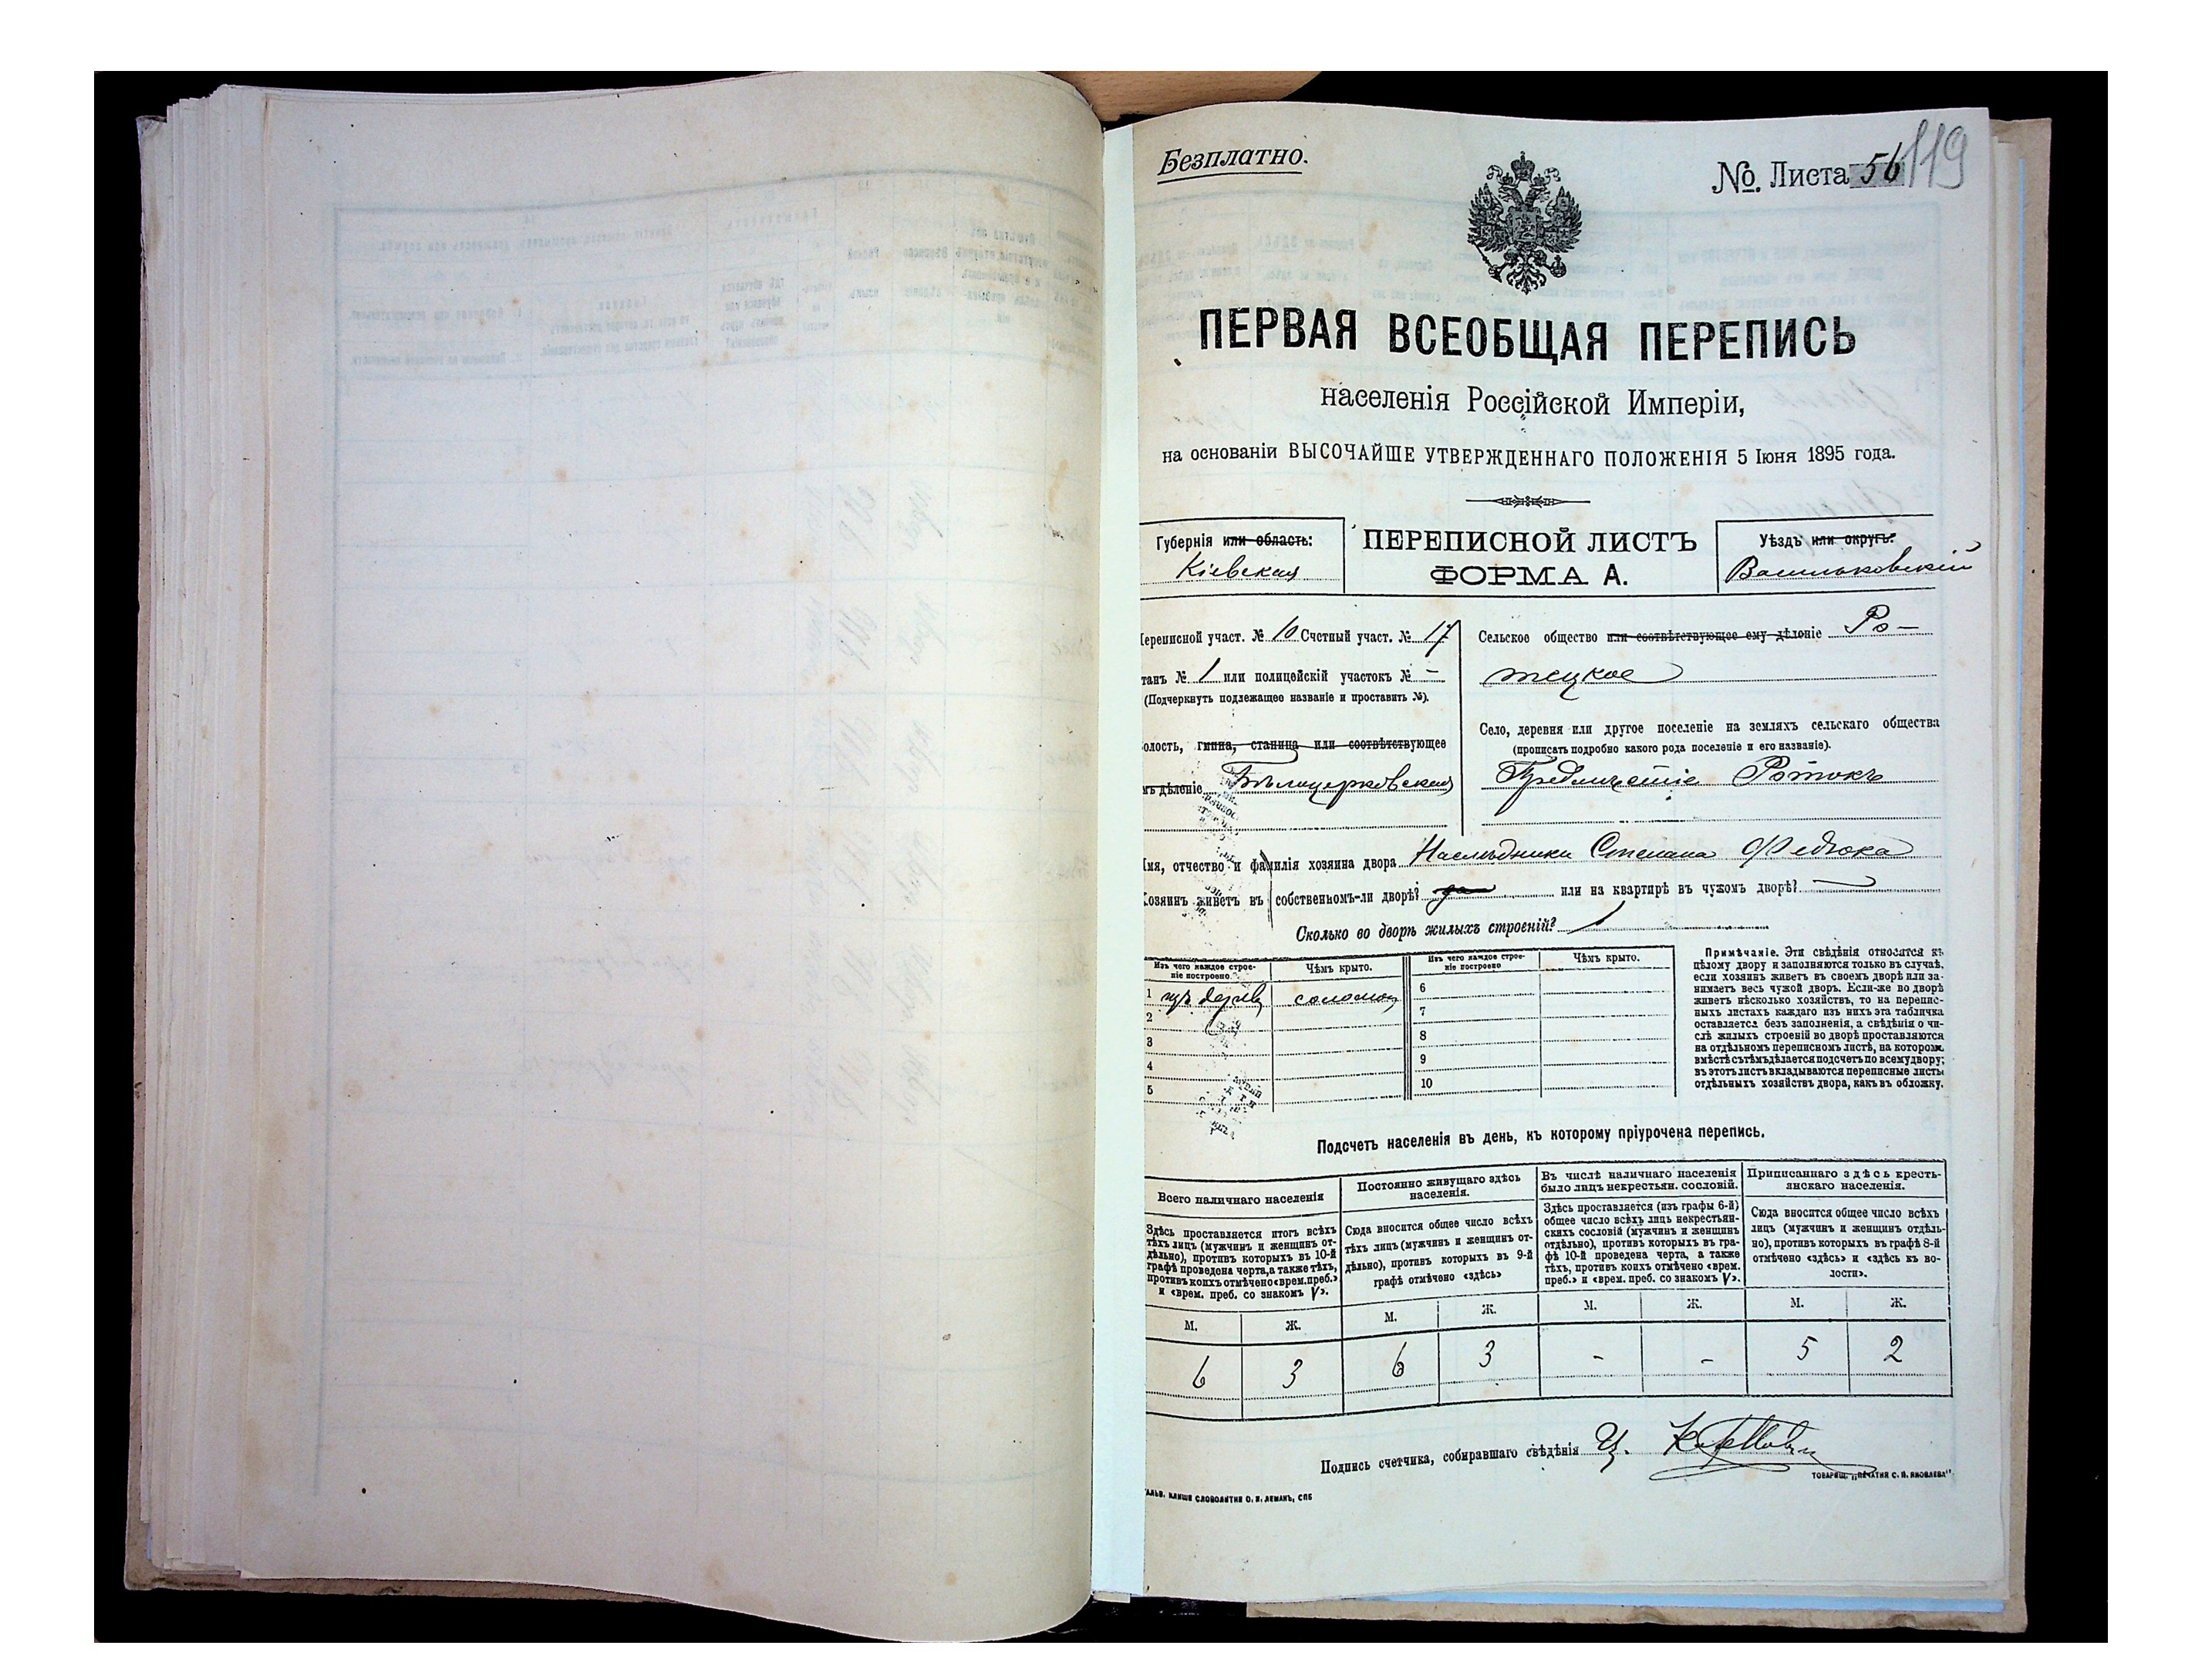 Безплатно.
№ Листа 56
119
ПЕРВАЯ ВСЕОБЩАЯ ПЕРЕПИСЬ
населенія Россійской Имперіи,
на основаніи ВЫСОЧАЙШЕ УТВЕРЖДЕННАГО ПОЛОЖЕНІЯ 5 Іюня 1895 года.
Губернія или область:
Кіевская
ПЕРЕПИСНОЙ ЛИСТЪ
ФОРМА А.
Уѣздъ или округъ:
Васильковскій
Переписной участ. № 10 Счетный участ. № 17
танъ № 1 или полицейскій участокъ № -
(Подчеркнуть подлежащее названіе и проставить №).
олость, гмина, станица или соотвѣтствующее
мъ дѣленіе Бѣлоцерковская
Сельское общество или соотвѣтствующее ему дѣленіе Ро-
тецкое
Село, деревня или другое поселеніе на земляхъ сельскаго общества
(прописать подробно какого рода поселеніе и его названіе).
Предмѣстіе Ротокъ
Имя, отчество и фамилія хозяина двора Наслѣдники Степана Федюка
Хозяинъ живетъ въ собственномъ-ли дворѣ? да или на квартирѣ въ чужомъ дворѣ? —
Сколько во дворѣ жилыхъ строеній? 1
Изъ чего каждое строе-
ніе построено.
Чѣмъ крыто.
Изъ чего каждое строе-
ніе построено
Чѣмъ крыто.
1 изъ дерева соломой
2
3
4
5
6
7
8
9
10
Примѣчаніе. Эти свѣдѣнія относятся къ
цѣлому двору и заполняются только въ случаѣ,
если хозяинъ живетъ въ своемъ дворѣ или за-
нимаетъ весь чужой дворъ. Если-же во дворѣ
живетъ нѣсколько хозяйствъ, то на перепис-
ныхъ листахъ каждаго изъ нихъ эта табличка
оставляется безъ заполненія, а свѣдѣнія о чи-
слѣ жилыхъ строеній во дворѣ проставляются
на отдѣльномъ переписномъ листѣ, на которомъ
вмѣстѣ съ тѣмъ дѣлается подсчетъ по всему двору;
въ этотъ листъ вкладываются переписные листы
отдѣльныхъ хозяйствъ двора, какъ въ обложку.
Подсчетъ населенія въ день, къ которому пріурочена перепись.
Всего наличнаго населенія
Здѣсь проставляется итогъ всѣхъ
тѣхъ лицъ (мужчинъ и женщинъ от-
дѣльно), противъ которыхъ въ 10-й
графѣ проведена черта, а также тѣхъ,
противъ коихъ отмѣчено «врем. преб.»
и «врем. преб. со знакомъ V».
Постоянно живущаго здѣсь
населенія.
Сюда вносится общее число всѣхъ
тѣхъ лицъ (мужчинъ и женщинъ от-
дѣльно), противъ которыхъ въ 9-й
графѣ отмѣчено «здѣсь»
Въ числѣ наличнаго населенія
было лицъ некрестьян. сословій.
Здѣсь проставляется (изъ графы 6-й)
общее число всѣхъ лицъ некрестьян-
скихъ сословій (мужчинъ и женщинъ
отдѣльно), противъ которыхъ въ гра-
фѣ 10-й проведена черта, а также
тѣхъ, противъ коихъ отмѣчено «врем.
преб.» и «врем. преб. со знакомъ V».
Приписаннаго здѣсь кресть-
янскаго населенія.
Сюда вносится общее число всѣхъ
лицъ (мужчинъ и женщинъ отдѣль-
но), противъ которыхъ въ графѣ 8-й
отмѣчено «здѣсь» и «здѣсь къ во-
лости».
М. Ж. М. Ж. М. Ж. М. Ж.
6 3 6 3 - - 5 2
Подпись счетчика, собиравшаго свѣдѣнія
ТОВАРИЩ. „ПЕЧАТНЯ С. П. ЯКОВЛЕВА“.
ГАЛЬВ. КЛИШЕ СЛОВОЛИТНИ О. И. ЛЕМАНЪ, СПБ